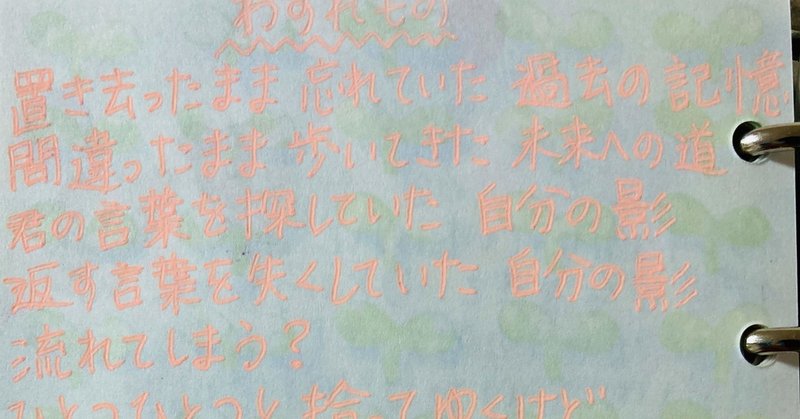 わすれもの
置き去ったまま 忘れていた 過去の記憶
間違ったまま 歩いてきた 未来への道
君の言葉を探していた 自分の影
返す言葉を失くしていた 自分の影
流れてしまう?
ひとつひとつと 拾ってゆくけど